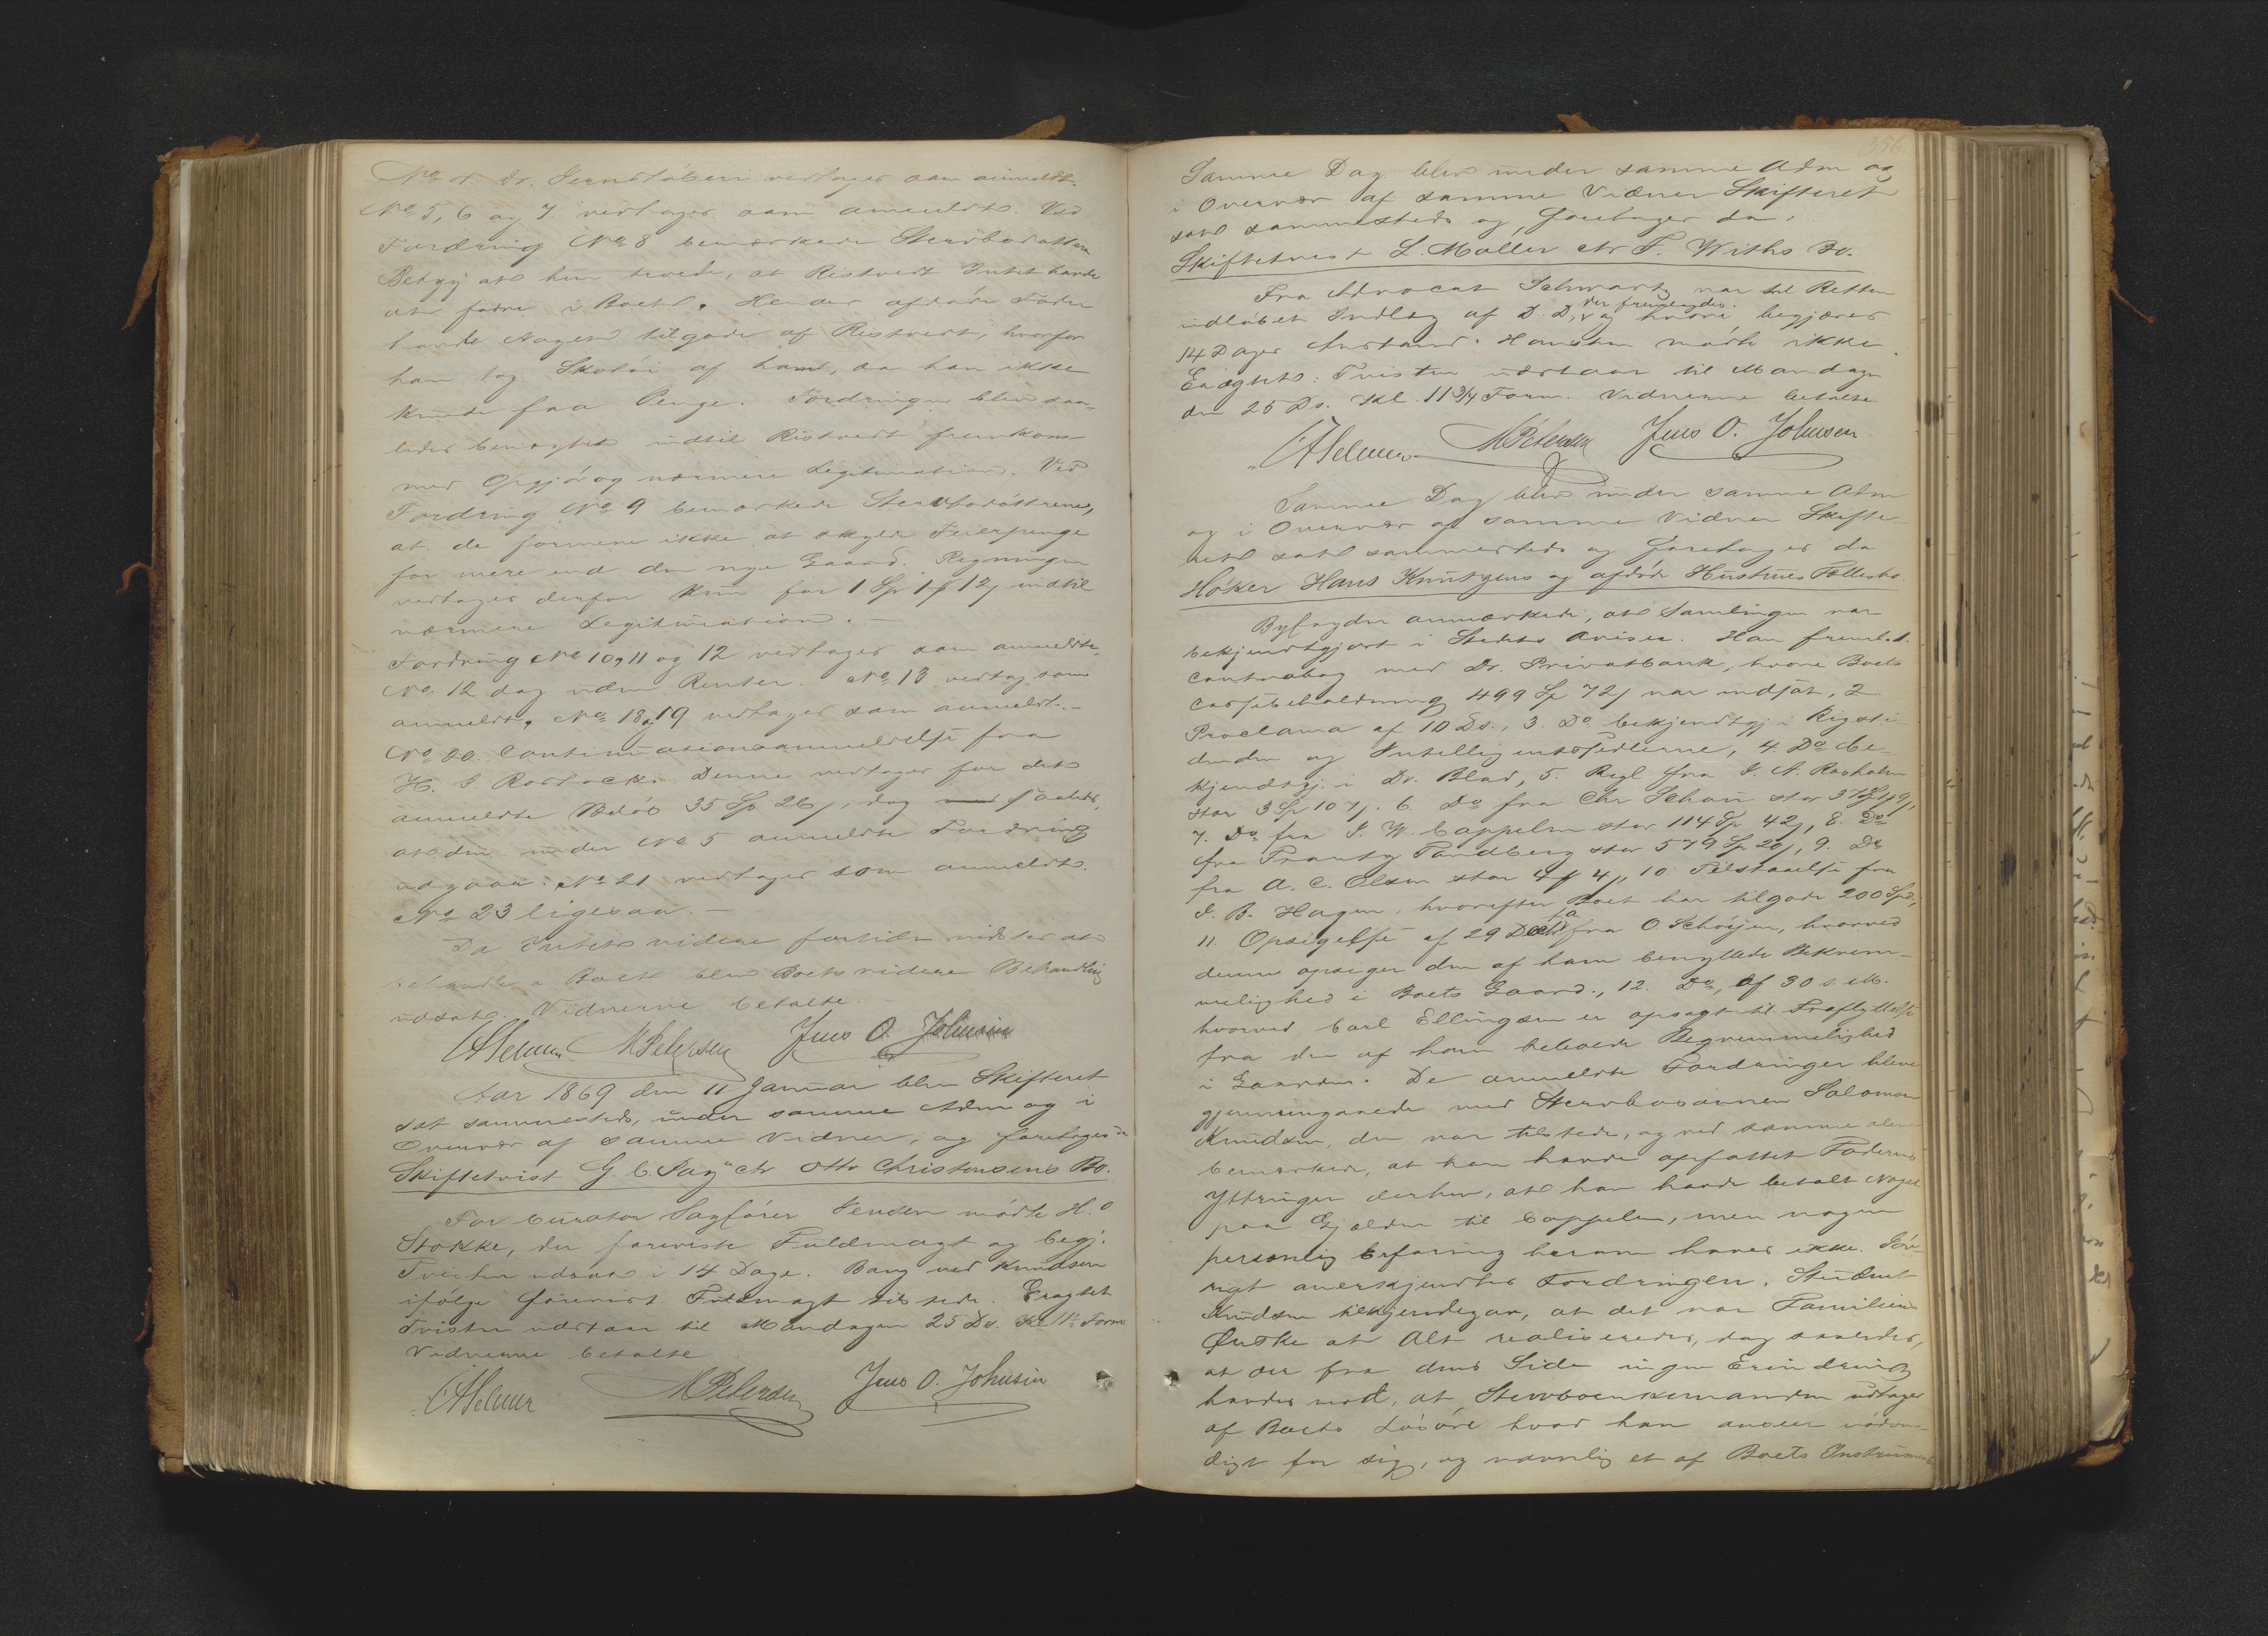 No 4 Dr. Jernstøberi vedtages som anmeldt.
No 5, 6 og 7 vedtages som anmeldt. Ved
Fordring No 8 bemærkede Stervbodatteren
Betzy at hun troede, at Ristvedt Intet havde
at fodre i Boet. Hendes afdøde Fader
havde Noget tilgode af Ristvedt, hvorfor
han tog Skotøi af ham, da han ikke
kunde faa Penge. Fordringen blev saa-
ledes benægtet indtil Ristvedt fremkom
med Opgjør og nærmere Legitimation. Ved
Fordring No 9 bemærkede Stervbodøttrene,
at de formene ikke at skylde Feierpenge
for mere end den nye Gaard. Regningen
vedtages derfor kun for 1 Sp 1 12 indtil
nærmere Legitimation. -
Fordring No 10, 11 og 12 vedtages som anmeldte,
No 12 dog uden Renter. No 13 vedtag. som
anmeldt, No 18 og 19 vedtages som anmeldt. -
No 20. Continuationsanmeldelse fra
H. S. Rostock. Denne vedtages for det
anmeldte Beløb 35 Sp 26, dog saaledes,
at den under No 5 anmeldte Fordring
udgaaer. No 21 vedtages som anmeldt.
No 23 ligesaa. -
Da Intet videre fortiden vidstes at
behandle i Boet blev Boets videre Behandling
udsat. Vidnerne betalte.
M Petersen Jens O. Johnsen
Aar 1869 den 11 Januar blev Skifteret
sat sammesteds, under samme Adm og i
Overvær af samme Vidner, og foretages da
Skiftetvist G. C. Pay ctr Otto Christensens Bo.
For Curator Sagfører Jensen mødte H. O
Stokke, der foreviste Fuldmagt og begj.
Tvisten udsat i 14 Dage. Bang ved Knudsen
ifølge forevist Fuldmagt tilstede. Eragtet
Tvisten udstaar til Mandagen 25 Ds. Kl 11 Form
Vidnerne betalte
M Petersen Jens O. Johnsen
356.
Samme Dag blev under samme Adm og
i Overvær af samme Vidner Skifteret
sat sammesteds og foretages da:
Skiftetvist L. Møller ctr T. Withs Bo.
Fra Advocat Schwartz var til Retten
indløbet Indlæg af D. D, der fremlagdes. og hvori begjæres
14 Dages Anstand. Hansen mødte ikke.
Eragtet: Tvisten udstaar til Mandagen
den 25 Ds. Kl. 11 3/4 Form. Vidnerne betalte.
M Petersen Jens O. Johnsen
Samme Dag blev under samme Adm
og i Overvær af samme Vidner Skifte-
ret sat sammesteds og foretages da
Høker Hans Knutzens og afdøde Hustrues Fællesbo
Byfogden anmærkede, at Samlingen var
bekjendtgjort i Stedets Aviser. Han freml. 1.
Contrabog med Dr. Privatbank, hvori Boets
Cassebeholdning 499 Sp 72 var indsat, 2
Proclama af 10 Ds., 3. Do bekjendtgj. i Rigsti-
denden og Intelligentssedlerne, 4. Do be-
kjendtgj. i Dr. Blad, 5. Regl fra J. A. Roshalm
stor 3 Sp 107. 6 Do fra Chr Schou stor
7. Do fra J. W. Cappelen stor 114 Sp 42, 8. Do
fra Frantz Tandberg stor 579 Sp 20, 9. Do
fra A. C. Olsen stor 4 4, 10 Tilstaaelse fra
J. B. Hagen, hvorefter Boet har tilgode 200 Spd,
11. Opsigelse af 29 fra O Schøyen, hvorved
denne opsiger den af ham benyttede Bekvem-
melighed i Boets Gaard., 12. Do, af 30 s. M.
hvorved Carl Ellingsen er opsagt til Fraflyttelse
fra den af ham beboede Beqvemmelighed
i Gaarden. De anmeldte Fordringer bleve
gjennemgaaede med Stervbosønnen Salomon
Knudsen, der var tilstede, og ved samme
bemærkede, at han havde opfattet Faderens
Yttringer derhen, at han havde betalt Noget
paa Gjælden til Cappelen, men nogen
personlig Erfaring herom haves ikke. Føv-
rigt anerkjendtes Fordringen. Student
Knudsen tilkjendegav, at det var Familiens
Ønske at Alt realiseredes, dog saaledes,
at der fra dens Side ingen Erindring
havdes mod, at Stervboenkemanden udtager
af Boets Løsøre hvad han anseer nødven-
digt for sig, og navnlig et af Boets Instrumenter